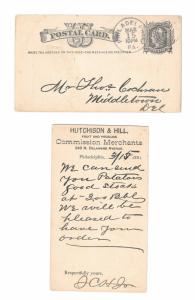 POSTAL CARD
WRITE THE ADDRESS ON THIS SIDE - THE MESSAGE ON THE OTHER
PHILADEL
MAR
10PM
PA.
Mr Thos. Cochran
Middletown
Del
HUTCHISON & HILL,
FRUIT AND PRODUCE
Commission Merchants
DELAWARE AVENUE.
Philadelphia,
We can send
you Potatoes
Good Stock
at
We will be
pleased to
have your
order
Respectfully yours,